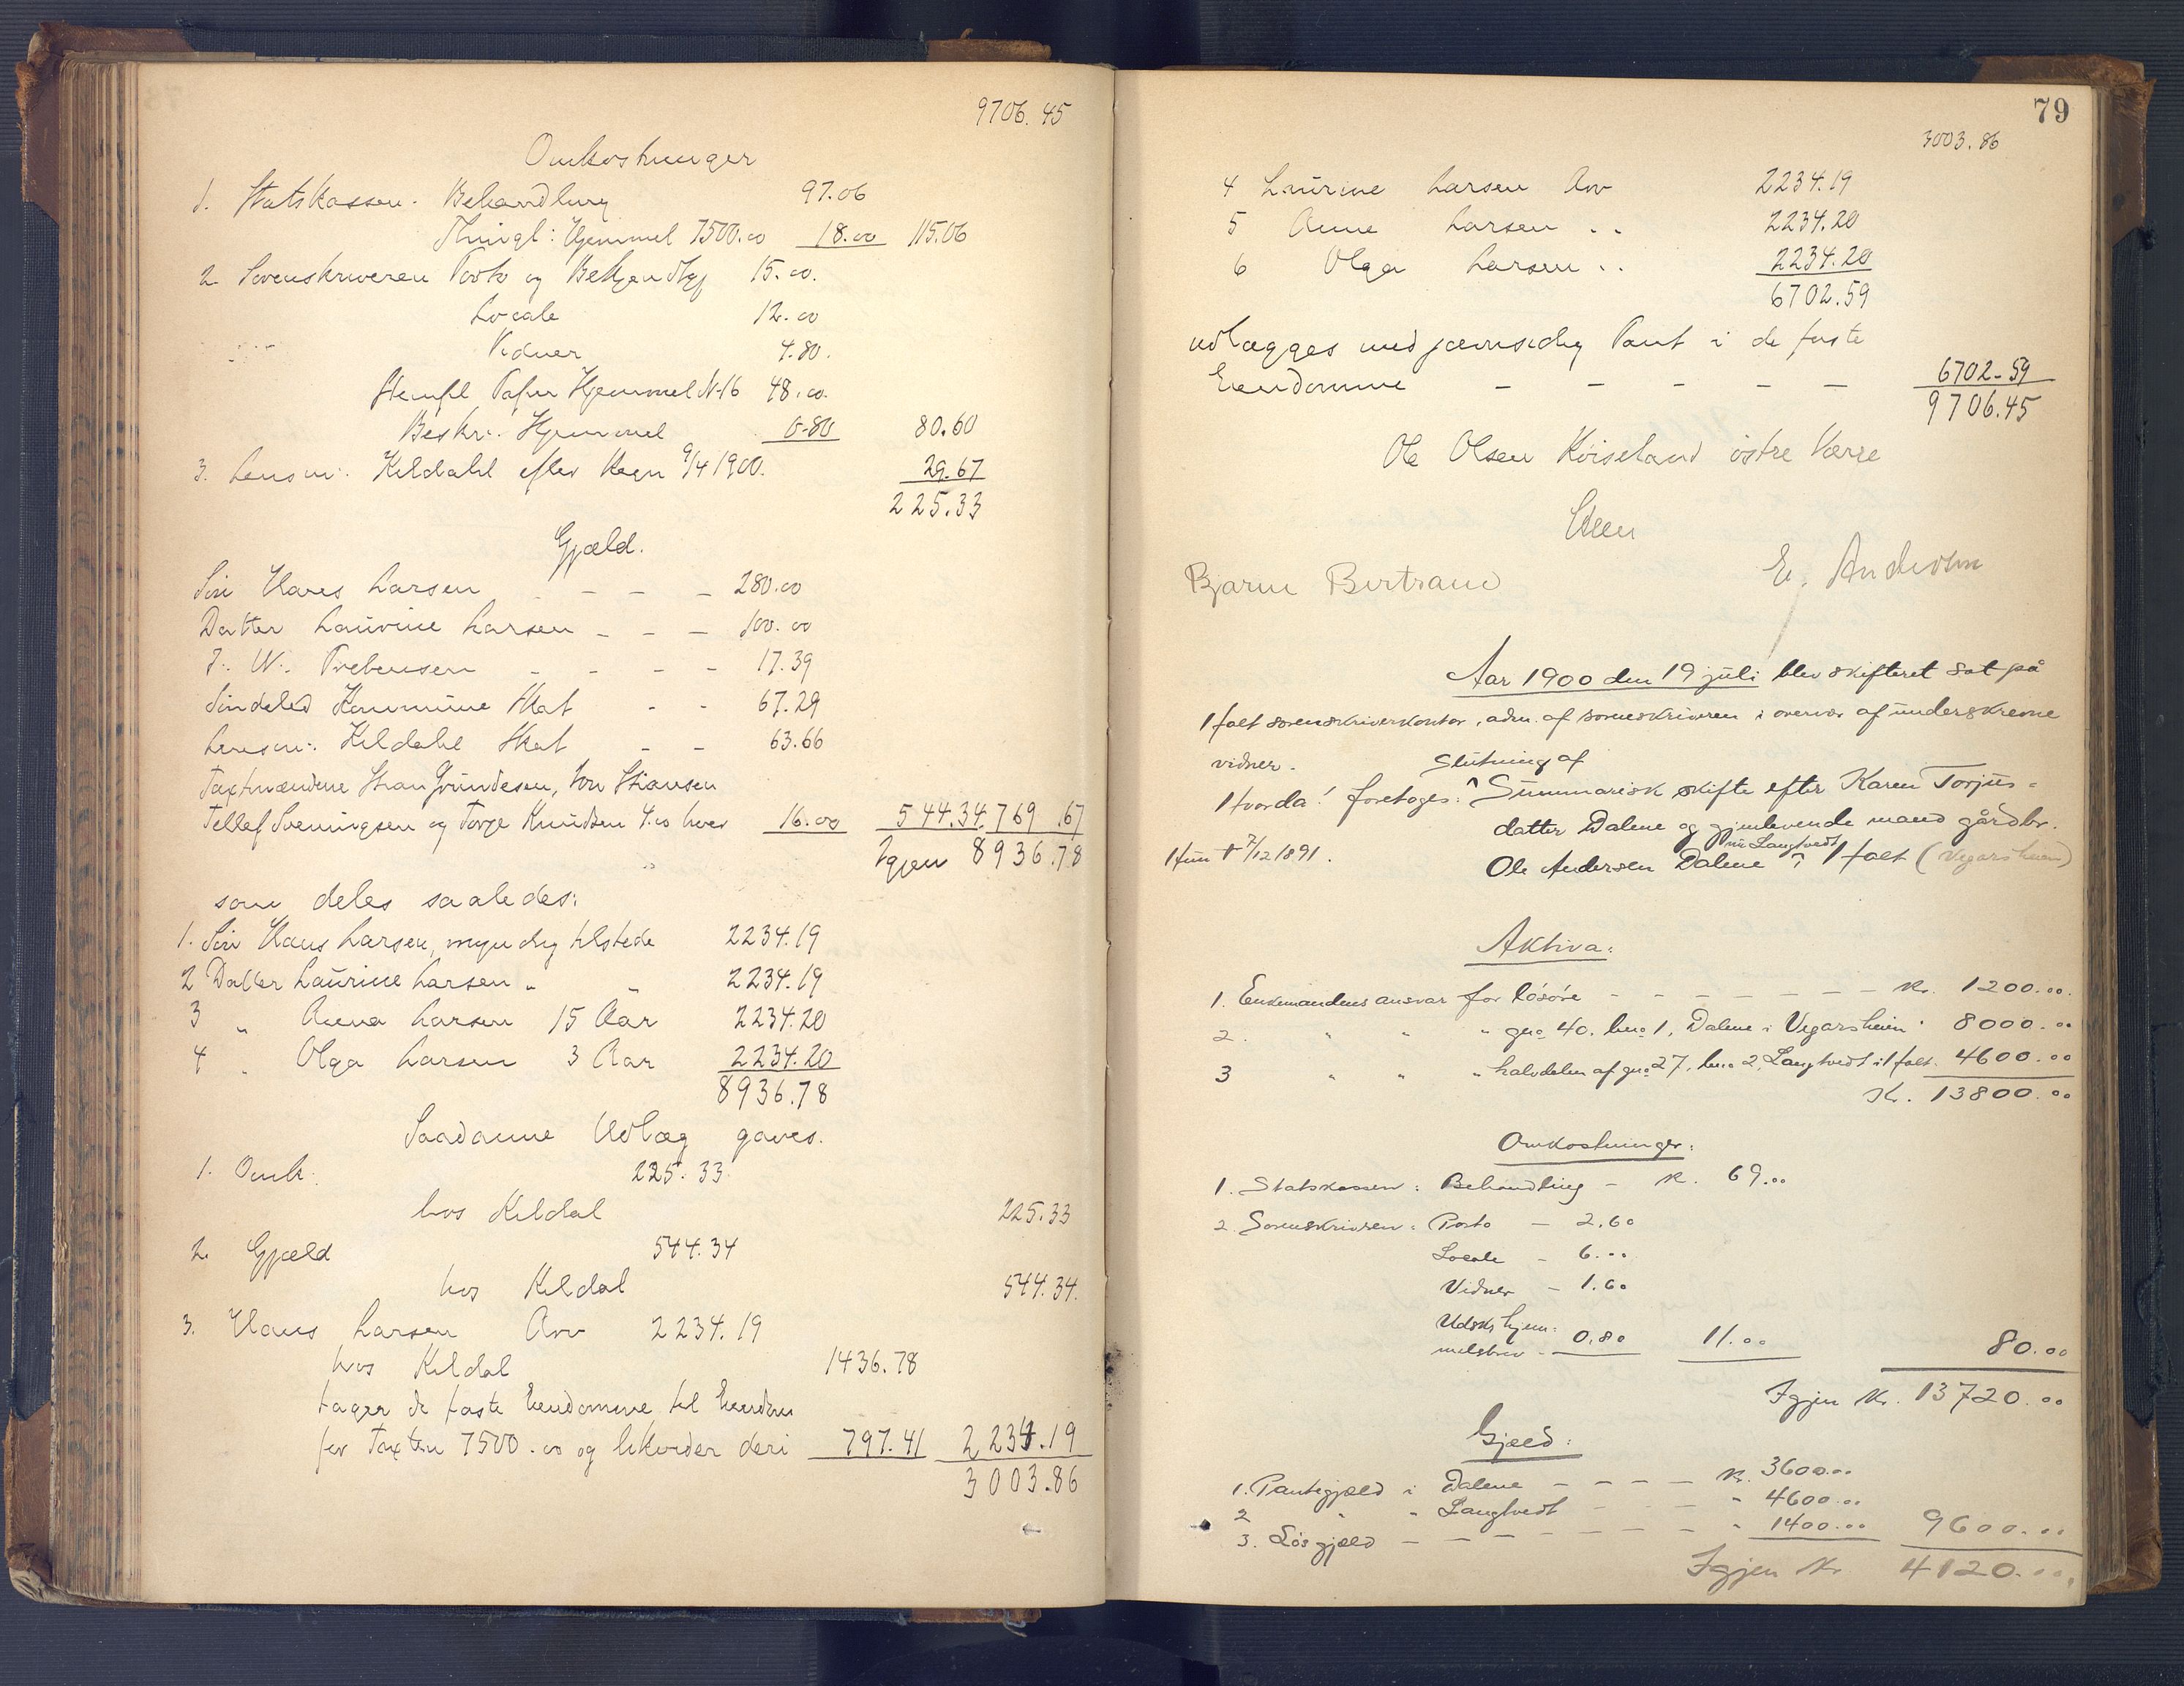 9706.45
Omkostninger
1. Statskassen. Behandling 97.06
Thingl: Hjemmel 7500.00 18.00 115.06
2. Sorenskriveren Porto og Bekjendtgj 15.00.
Locale 12.00
Vidner 4.80.
Stempl Papir Hjemmel N-16 48.00.
Beskr. Hjemmel 0-80 80.60
3. Lensm: Kildahl efter Regn 9/4 1900. 29.67
225.33
Gjæld.
Sön Hans Larsen - - - - 280.00
Datter Laurine Larsen - - - 100.00
J. W. Prebensen - - - - 17.39
Söndeled Kommune Skat - - 67.29
Lensm: Kildahl Skat - - 63.66
Taxtmændene Stian Gundesen, Jon Stiansen
Tellef Sveningsen og Torge Knudsen 4.00 hver 16.00 544.34 769.67
Igjen 8936.78
som deles saaledes:
1. Sön Hans Larsen, myndig tilstede 2234.19
2 Datter Laurine Larsen " " 2234.19
3 " Anna Larsen 15 Aar 2234.20
4 " Olga Larsen 3 Aar 2234.20
8936.78
Saadanne Udlæg gaves.
1. Omk. 225.33
hos Kildal 225.33
2. Gjæld 544.34
hos Kildal 544.34.
3. Hans Larsen Arv 2234.19
hos Kildal 1436.78
tager de faste Eiendomme til Eiendom
for Taxten 7500.00 og likvider deri 797.41 2234.19
3003.86
79
3003.86
4 Laurine Larsen Arv 2234.19
5 Anne Larsen " 2234.20
6 Olga Larsen " 2234.20
6702.59
udlægges med jævnsidig Pant i de faste
Eiendomme - - - - - 6702-59
9706.45
Ole Olsen Röiseland östre Værre
Steen
Bjarne Bertrand E. Anderson
Aar 1900 den 19 juli blev skifteret sat på
Holt sorenskriverkontor, adm. af sorenskriveren i overvær af underskrevne
vidner.
Slutning af
Hvorda! foretoges: ^ Summarisk skifte efter Karen Torjus-
datter Dalene og gjenlevende mand gårdbr.
nu Langtvedt
Hun † 7/12 1891. Ole Andersen Dalene ^ i Holt (Vegarsheien)
Aktiva:
1. Enkemandens ansvar for lösöre - - - - - - - Kr. 1200.00.
2. " " " gno 40. bno 1, Dalene i Vegarsheien " 8000.00
3 " " " halvdelen af gno 27, bno 2, Langtvedt i Holt. 4600.00
Kr. 13800.00
Omkostninger:
1. Statskassen: Behandling - Kr. 69.00
2 Sorenskriveren: Porto - 2.60
Locale - 6.00
Vidner - 1.60
Udskr hjem:
melsbrev - 0.80 11.00 80.00
Igjen Kr. 13720.00
Gjæld:
1. Pantegjæld i Dalene - - - - Kr. 3600.00
2 " " Langtvedt - - - " 4600.00
3. Lösgjæld - - - - - - - " 1400.00 9600.00
Igjen Kr 4120.00.